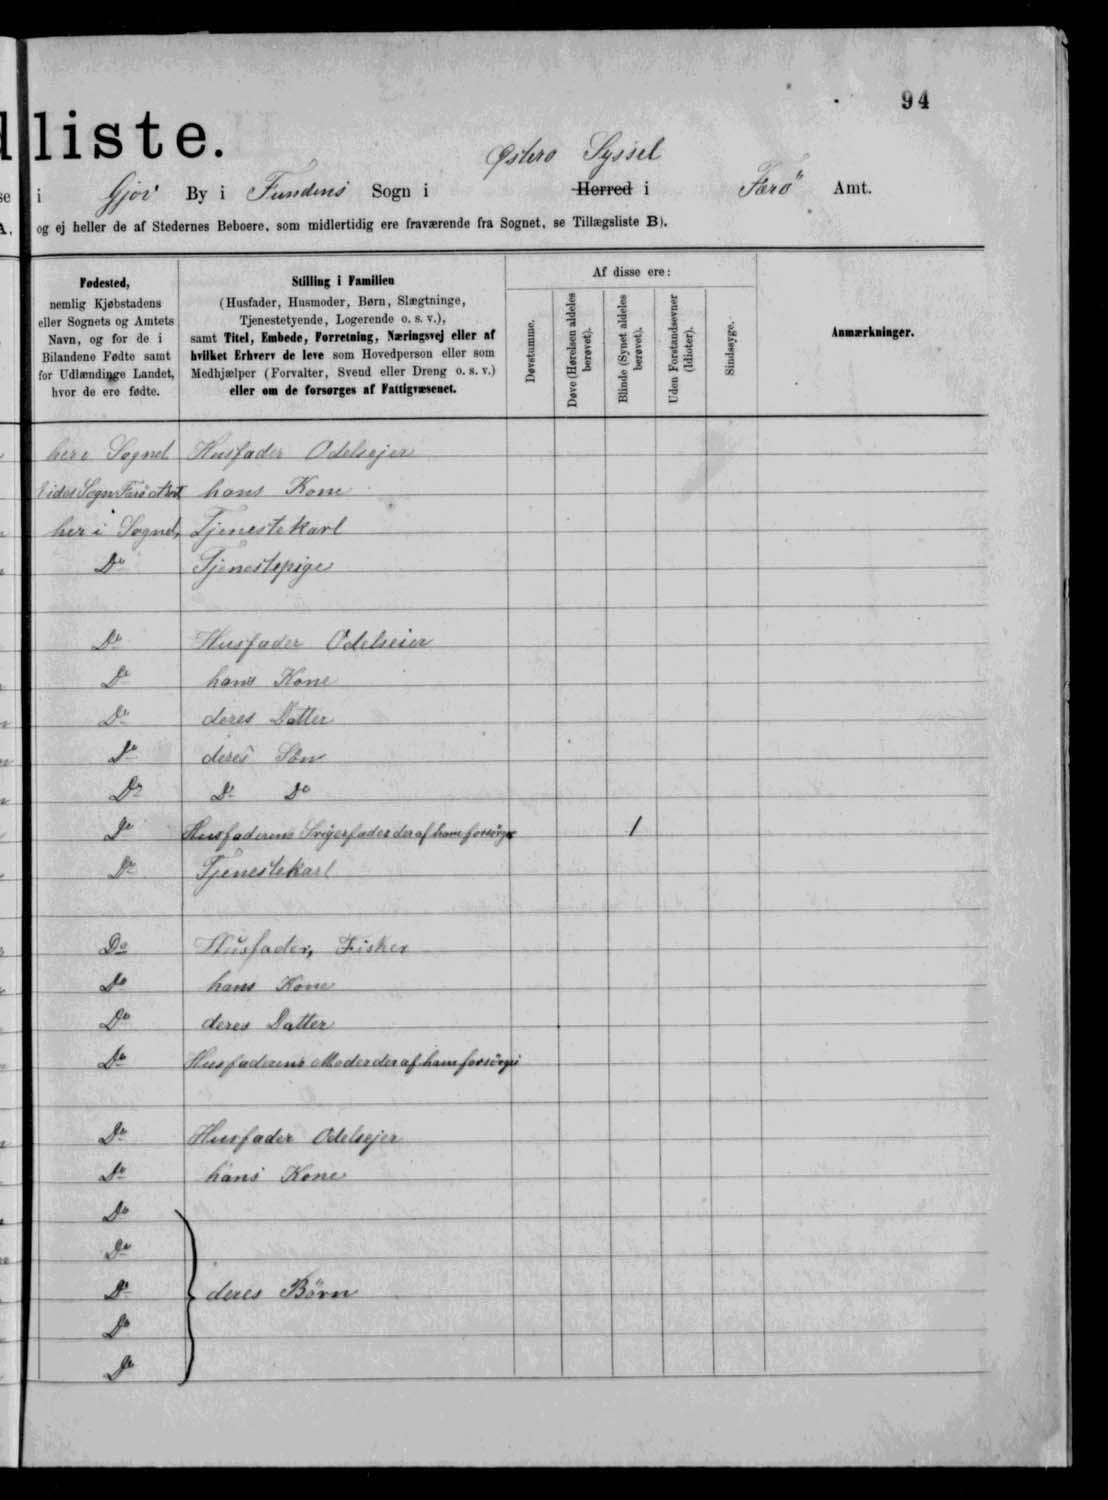 94
dliste.
Østerø Syssel
i Gjov By i Fundens Sogn i Herred i Færø Amt.
og ej heller de af Stedernes Beboere, som midlertidig ere fraværende fra Sognet, se Tillægsliste B).
Fødested,
nemlig Kjøbstadens
eller Sognets og Amtets
Navn, og for de i
Bilandene Fødte samt
for Udlændinge Landet,
hvor de ere fødte.
Stilling i Familien
(Husfader, Husmoder, Børn, Slægtninge,
Tjenestetyende, Logerende o. s. v.),
samt Titel, Embede, Forretning, Næringsvej eller af
hvilket Erhverv de leve som Hovedperson eller som
Medhjælper (Forvalter, Svend eller Dreng o. s. v.)
eller om de forsørges af Fattigvæsenet.
Af disse ere:
Døvstumme.
Døve (Hørelsen aldeles
berøvet).
Blinde (Synet aldeles
berøvet).
Uden Forstandsevner
(Idioter).
Sindssyge.
Anmærkninger.
her i Sognet Husfader Odelsejer
Eides Sogn Færø Amt hans Kone
her i Sognet, Tjenestekarl
Do Tjenestepige
Do Husfader Odelseier
Do hans Kone
Do deres Datter
Do deres Søn
Do Do Do
Do Husfaderens Svigerfader der af ham forsørges 1
Do Tjenestekarl
Do Husfader, Fisker
Do hans Kone
Do deres Datter
Do Husfaderens Moder der af ham forsørges
Do Husfader Odelsejer
Do hans Kone
Do
Do
Do deres Börn
Do
Do